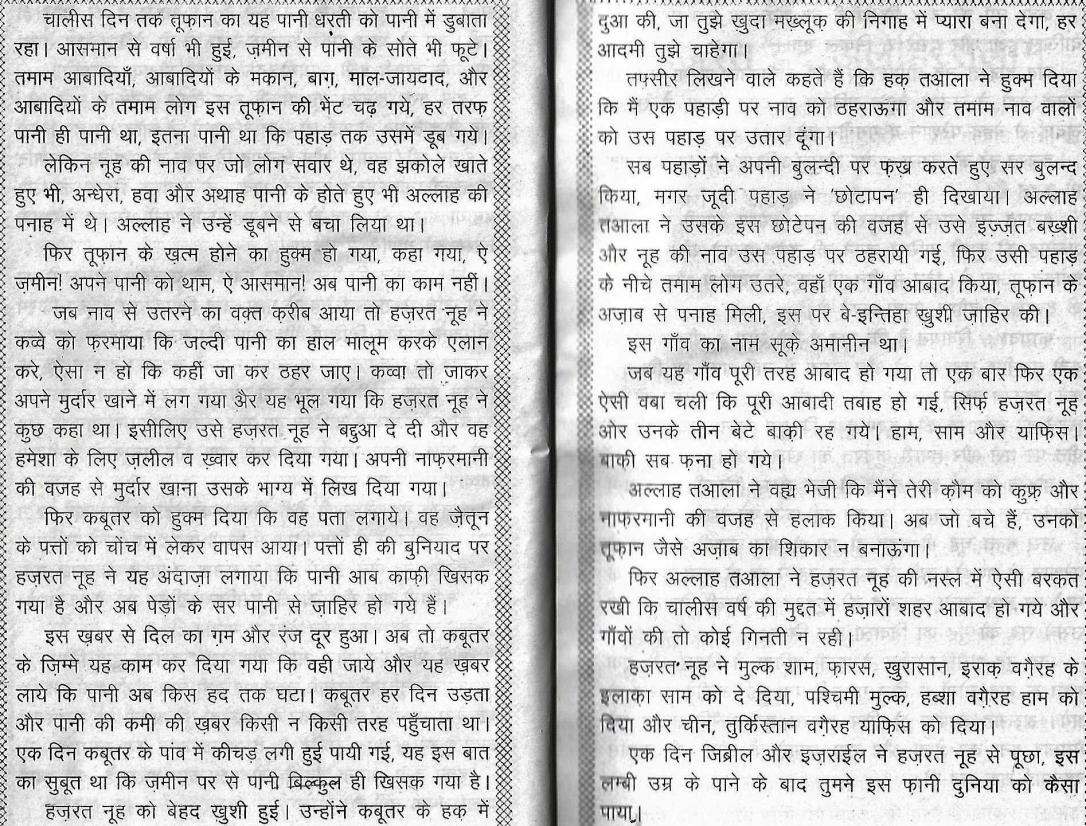 चालीस दिन तक तूफान का यह पानी धरती को पानी में डुबाता
रहा। आसमान से वर्षा भी हुई, ज़मीन से पानी के सोते भी फूटे।
तमाम आबादियाँ, आबादियों के मकान, बाग़, माल-जायदाद, और
आबादियों के तमाम लोग इस तूफ़ान की भेंट चढ़ गये, हर तरफ
पानी ही पानी था, इतना पानी था कि पहाड़ तक उसमें डूब गये।
लेकिन नूह की नाव पर जो लोग सवार थे, वह झकोले खाते
हुए भी, अन्धेरा, हवा और अथाह पानी के होते हुए भी अल्लाह की
पनाह में थे। अल्लाह ने उन्हें डूबने से बचा लिया था।
फिर तूफ़ान के ख़त्म होने का हुक्म हो गया, कहा गया, ऐ
ज़मीन! अपने पानी को थाम, ऐ आसमान! अब पानी का काम नहीं।
जब नाव से उतरने का वक़्त करीब आया तो हज़रत नूह ने
कव्वे को फरमाया कि जल्दी पानी का हाल मालूम करके एलान
करे, ऐसा न हो कि कहीं जा कर ठहर जाए। कव्वा तो जाकर
अपने मुर्दार खाने में लग गया अैर यह भूल गया कि हज़रत नूह ने
कुछ कहा था। इसीलिए उसे हज़रत नूह ने बद्दुआ दे दी और वह
हमेशा के लिए ज़लील व ख़्वार कर दिया गया। अपनी नाफ़रमानी
की वजह से मुर्दार खाना उसके भाग्य में लिख दिया गया।
फिर कबूतर को हुक्म दिया कि वह पता लगाये। वह ज़ैतून
के पत्तों को चोंच में लेकर वापस आया। पत्तों ही की बुनियाद पर
हज़रत नूह ने यह अंदाज़ा लगाया कि पानी आब काफ़ी खिसक
गया है और अब पेड़ों के सर पानी से ज़ाहिर हो गये हैं।
इस ख़बर से दिल का गम और रंज दूर हुआ। अब तो कबूतर
के ज़िम्मे यह काम कर दिया गया कि वही जाये और यह ख़बर
लाये कि पानी अब किस हद तक घटा। कबूतर हर दिन उड़ता
और पानी की कमी की ख़बर किसी न किसी तरह पहुँचाता था।
एक दिन कबूतर के पांव में कीचड़ लगी हुई पायी गई, यह इस बात
का सुबूत था कि ज़मीन पर से पानी बिल्कुल ही खिसक गया है।
हज़रत नूह को बेहद ख़ुशी हुई। उन्होंने कबूतर के हक़ में
दुआ की, जा तुझे ख़ुदा मख़्लूक़ की निगाह में प्यारा बना देगा, हर
आदमी तुझे चाहेगा।
तफ़्सीर लिखने वाले कहते हैं कि हक़ तआला ने हुक्म दिया
कि मैं एक पहाड़ी पर नाव को ठहराऊंगा और तमाम नाव वालों
को उस पहाड़ पर उतार दूंगा।
सब पहाड़ों ने अपनी बुलन्दी पर फ़ख़्र करते हुए सर बुलन्द
किया, मगर जूदी पहाड़ ने 'छोटापन' ही दिखाया। अल्लाह
तआला ने उसके इस छोटेपन की वजह से उसे इज़्ज़त बख़्शी
और नूह की नाव उस पहाड़ पर ठहरायी गई, फिर उसी पहाड़
के नीचे तमाम लोग उतरे, वहाँ एक गाँव आबाद किया, तूफ़ान के
अज़ाब से पनाह मिली, इस पर बे-इन्तिहा ख़ुशी ज़ाहिर की।
इस गाँव का नाम सूक़े अमानीन था।
जब यह गाँव पूरी तरह आबाद हो गया तो एक बार फिर एक
ऐसी वबा चली कि पूरी आबादी तबाह हो गई, सिर्फ़ हज़रत नूह
और उनके तीन बेटे बाक़ी रह गये। हाम, साम और याफिस।
बाकी सब फ़ना हो गये।
अल्लाह तआला ने वह्य भेजी कि मैंने तेरी क़ौम को कुफ़्र और
नाफरगानी की वजह से हलाक किया। अब जो बचे हैं, उनको
तूफ़ान जैसे अज़ाब का शिकार न बनाऊंगा।
फिर अल्लाह तआला ने हज़रत नूह की नस्ल में ऐसी बरकत
रखी कि चालीस वर्ष की मुद्दत में हज़ारों शहर आबाद हो गये और
गाँवों की तो कोई गिनती न रही।
हज़रत नूह ने मुल्क शाम, फ़ारस, ख़ुरासान, इराक़ वग़ैरह के
इलाक़ा साम को दे दिया, पश्चिमी मुल्क, हब्शा वग़ैरह हाम को
दिया और चीन, तुर्किस्तान वग़ैरह याफ़िस को दिया।
एक दिन जिब्रील और इज़राईल ने हज़रत नूह से पूछा, इस
लम्बी उम्र के पाने के बाद तुमने इस फ़ानी दुनिया को कैसा
पाया।